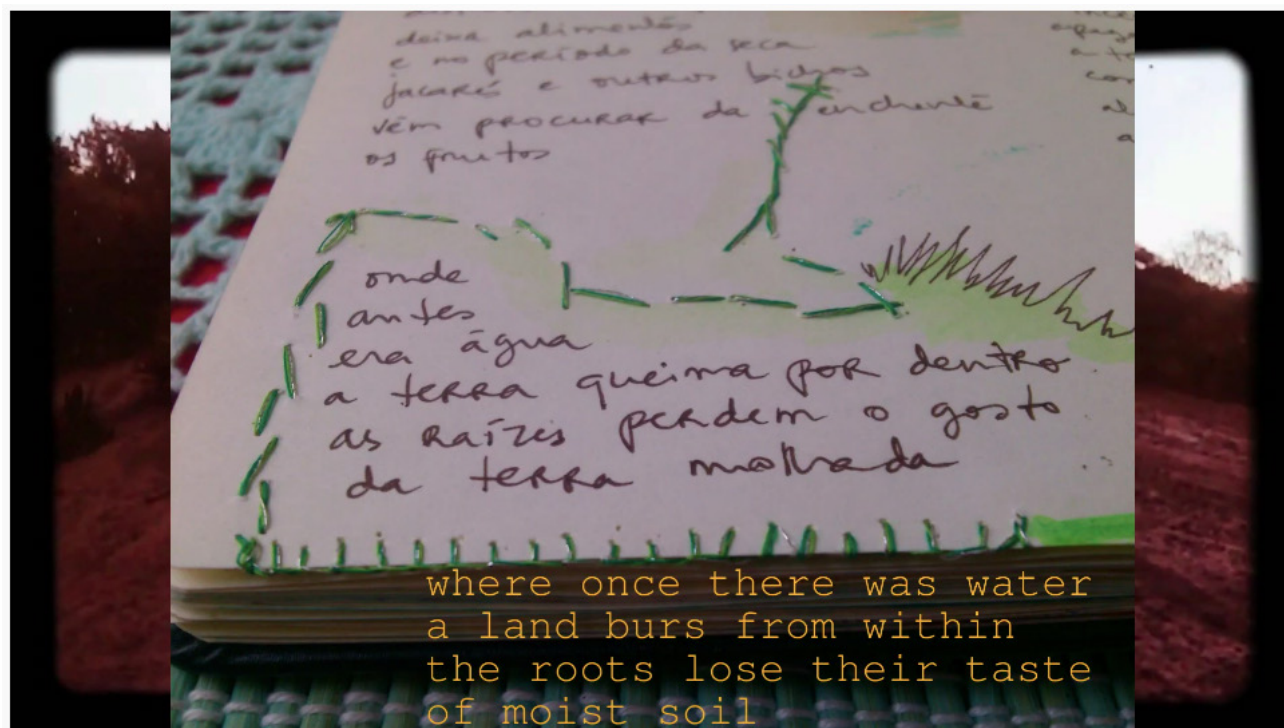 deixa alimentos
e no período da seca
jacarés e outros bichos
vêm procurar da enchente
os frutos
onde
antes
era água
a terra queima por dentro
as raízes perdem o gosto
da terra molhada
where once there was water
a land burs from within
the roots lose their taste
of moist soil